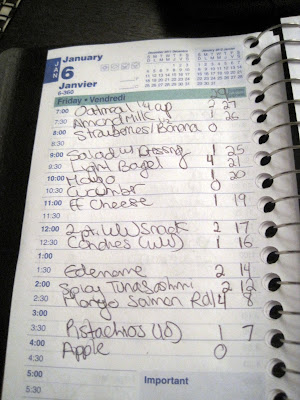 January
JAN
6
Janvier
6-360
Friday • Vendredi
29
7:00 Oatmeal 1/4 cup 2 27
7:30 Almond Milk 1/2 1 26
8:00 Strawberries/Banana 0
8:30
9:00 Salad w/ Dressing 1 25
9:30 Light Bagel 4 21
10:00 1 20
10:30 Cucumber 0
11:00 FF Cheese 1 19
11:30
12:00 2 pt. WW snack 2 17
12:30 Candies (WW) 1 16
1:00
1:30 Edename 2 14
2:00 Spicy Tuna Sashimi 2 12
2:30 Mango Salmon Roll 4 8
3:00
3:30 Pistachios (18) 1 7
4:00 Apple 0
4:30
5:00
5:30
Important